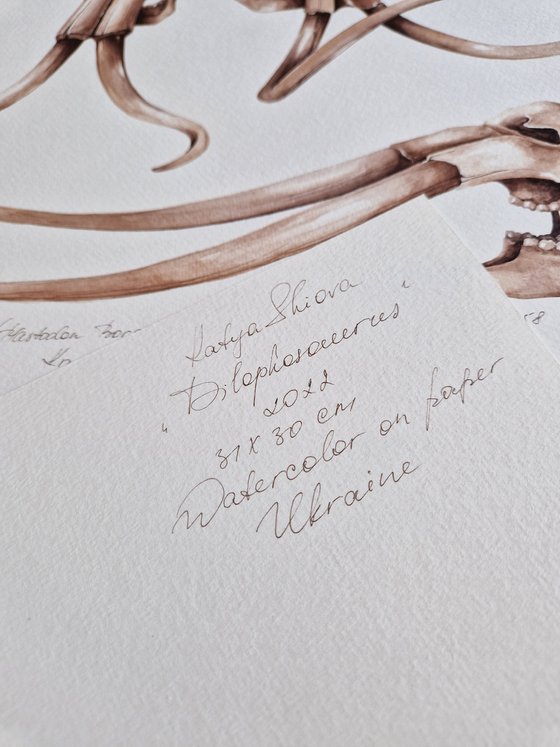 Mastodon
Katya Shiova
"Dilophosaurus"
2022
31 x 30 cm
Watercolor on paper
Ukraine